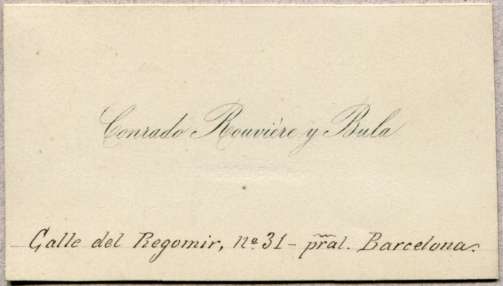 Conrado Rouvière y Bula
Calle del Regomir, nº 31 - pral. Barcelona.